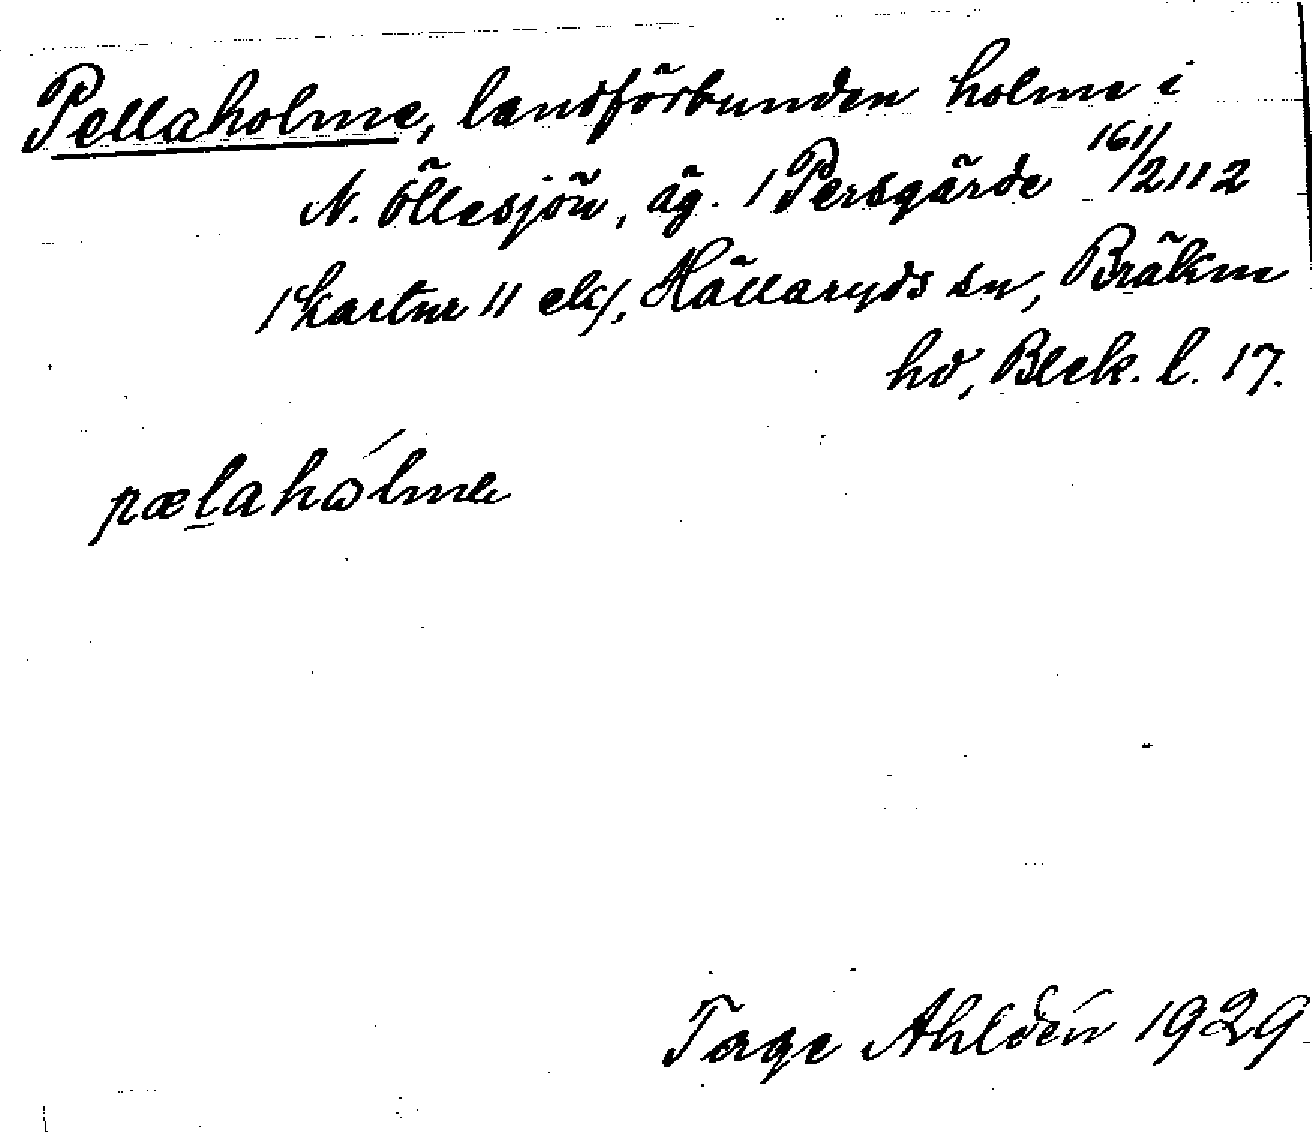 Pellaholme, landförbunden holme i
N. Öllesjön, äg. 1 Persgärde 161/2112
/kartnr 11 ek/, Hällaryds sn, Bräkne
hd, Blek. l. 17.
pælahólme
Tage Ahldén 1929